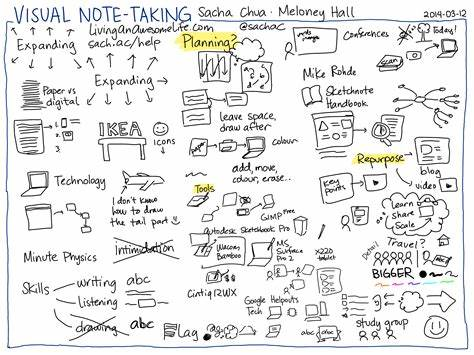 VISUAL NOTE-TAKING Sacha Chua · Meloney Hall 2014-03-12
LivingAnAwesomeLife.com @sachac
Expanding sach.ac/help
Expanding
Paper vs
digital
IKEA
icons
Technology
I don't know
how to draw
the tail part
Minute Physics
Intimidation
Skills
writing abc
Listening
drawing abc
Planning?
a c
b d e
leave space,
draw after
colour
add, move,
colour, erase..
Tools
GIMP Free
Autodesk Sketchbook Pro
Wacom
Bamboo
MS
Surface Pro
2
X220
tablet
Cintiq 12WX
Google Helpouts
Tech
Lag
abc
Conferences
Today!
scan
Mike Rohde
Sketchnote
Handbook
Repurpose
key
points
blog
video
learn
share
Scale
Travel?
Detail
BIGGER
study group